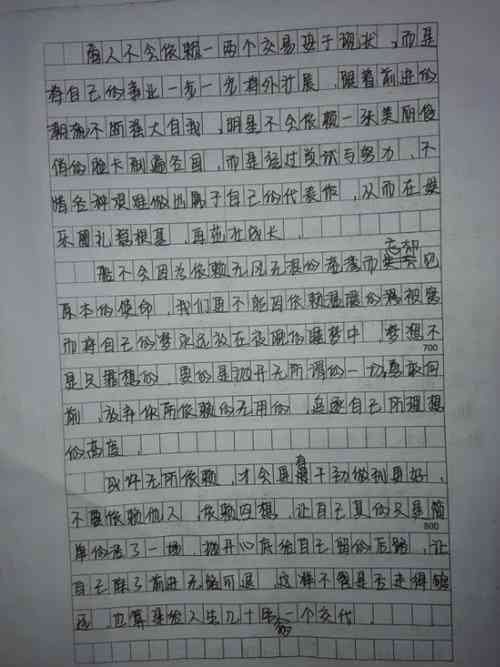 商人不会依赖一两个交易安于现状,而是
将自己的事业一步一步将外扩展,跟着前进的
潮流不断强大自我,明星不会依赖一张美丽俊
俏的脸卡刷遍各国,而是经过尝试与努力,不
惜各种艰难做出属于自己的代表作,从而在娱
乐圈扎稳根基,再茁壮成长。
船不会因为依赖无风无浪的港湾而忘却
原本的使命,我们更不能因依赖温暖的被窝
而将自己的梦永远放在夜晚的睡梦中,梦想不
700
是只靠想的,要的是抛开无所谓的一切,勇敢向
前,放弃你所依赖的无用的,追逐自己所理想
的高度。
或许无所依赖,才会是有干劲做到更好,
不要依赖他人,依赖回想,让自己真的只是简
800
单的活了一场,抛开心底给自己留的后路,让
自己除了前进无路可退,这样不管是否走得够
远,也算是给人生几十年一个交代